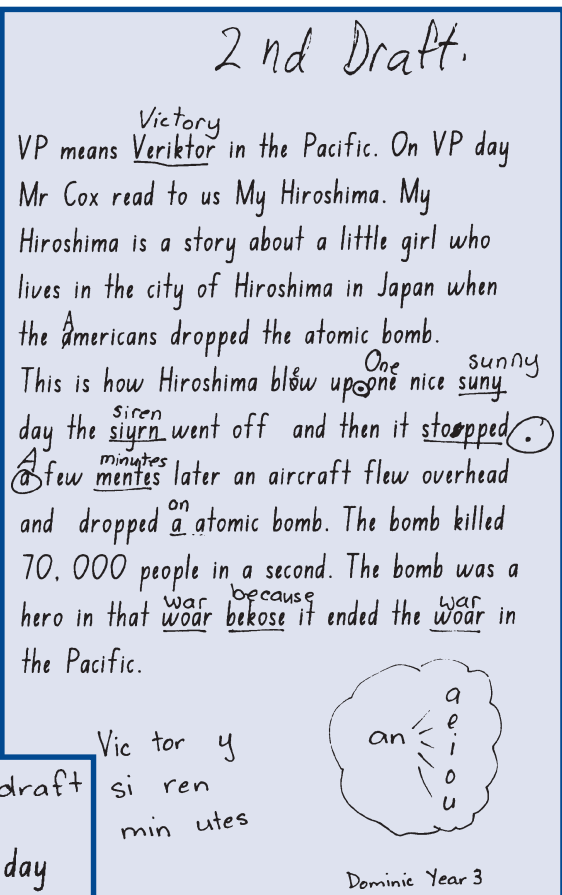 2nd Draft.
Victory
VP means Veriktor in the Pacific. On VP day
Mr Cox read to us My Hiroshima. My
Hiroshima is a story about a little girl who
lives in the city of Hiroshima in Japan when
A
the americans dropped the atomic bomb.
e One sunny
This is how Hiroshima blow up. one nice suny
siren
day the siyrn went off and then it stopped.
A minutes
a few mentes later an aircraft flew overhead
on
and dropped a atomic bomb. The bomb killed
70,000 people in a second. The bomb was a
war because war
hero in that woar bekose it ended the woar in
the Pacific.
Vic tor y
si ren
min utes
an
a
e
i
o
u
draft
day
Dominic Year 3